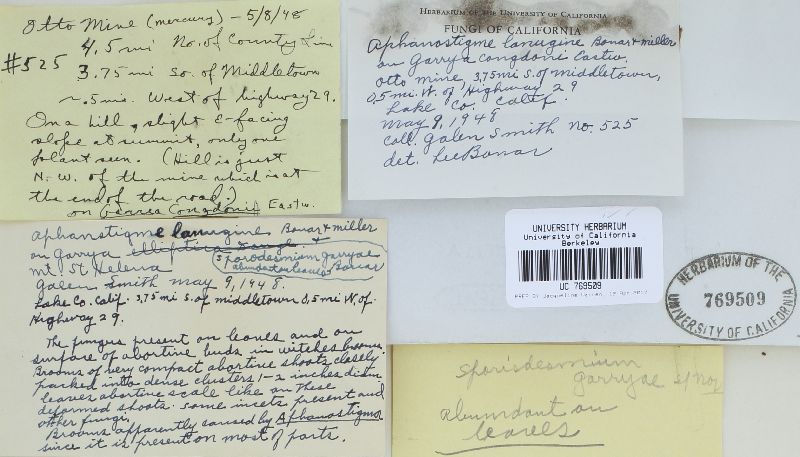 Otto Mine (mercury) - 5/8/48
4.5 mi No. of County Line
#525
3.75 mi So. of Middletown
~.5 mi. West of highway 29.
On a hill, slight E-facing
slope at summit, only one
plant seen. (Hill is just
N.W. of the mine which is at
the end of the road.)
on Garrya Congdonii Eastw.
HERBARIUM OF THE UNIVERSITY OF CALIFORNIA
FUNGI OF CALIFORNIA
Aphanostigme lanugine Bonar & Miller
on Garrya congdoni Eastw.
Otto mine, 3.75 mi S. of Middletown,
0.5 mi. W. of Highway 29
Lake Co. Calif.
May 9, 1948
coll. Galen Smith No. 525
det. Lee Bonar
Aphanstigme lanugine Bonar & Miller
on Garrya elliptica &
Sporodesmium garryae
abundant on leaves Bonar
Mt St Helena
Galen Smith May 9, 1948.
Lake Co. Calif. 3.75 mi S. of Middletown 0.5 mi W. of
Highway 29.
The fungus present on leaves and on
surface of abortive buds in witches brooms.
Brooms of very compact abortive shoots closely
packed into dense clusters 1-2 inches diam
leaves abortive scale like on these
deformed shoots. Some incets present and
other fungi.
Brooms apparently caused by Aphanostigma
since it is present on most of parts.
UNIVERSITY HERBARIUM
University of California
Berkeley
UC 769509
HERBARIUM OF THE
769509
UNIVERSITY OF CALIFORNIA
Sporidesmium
garryae sp nov
abundant on
leaves